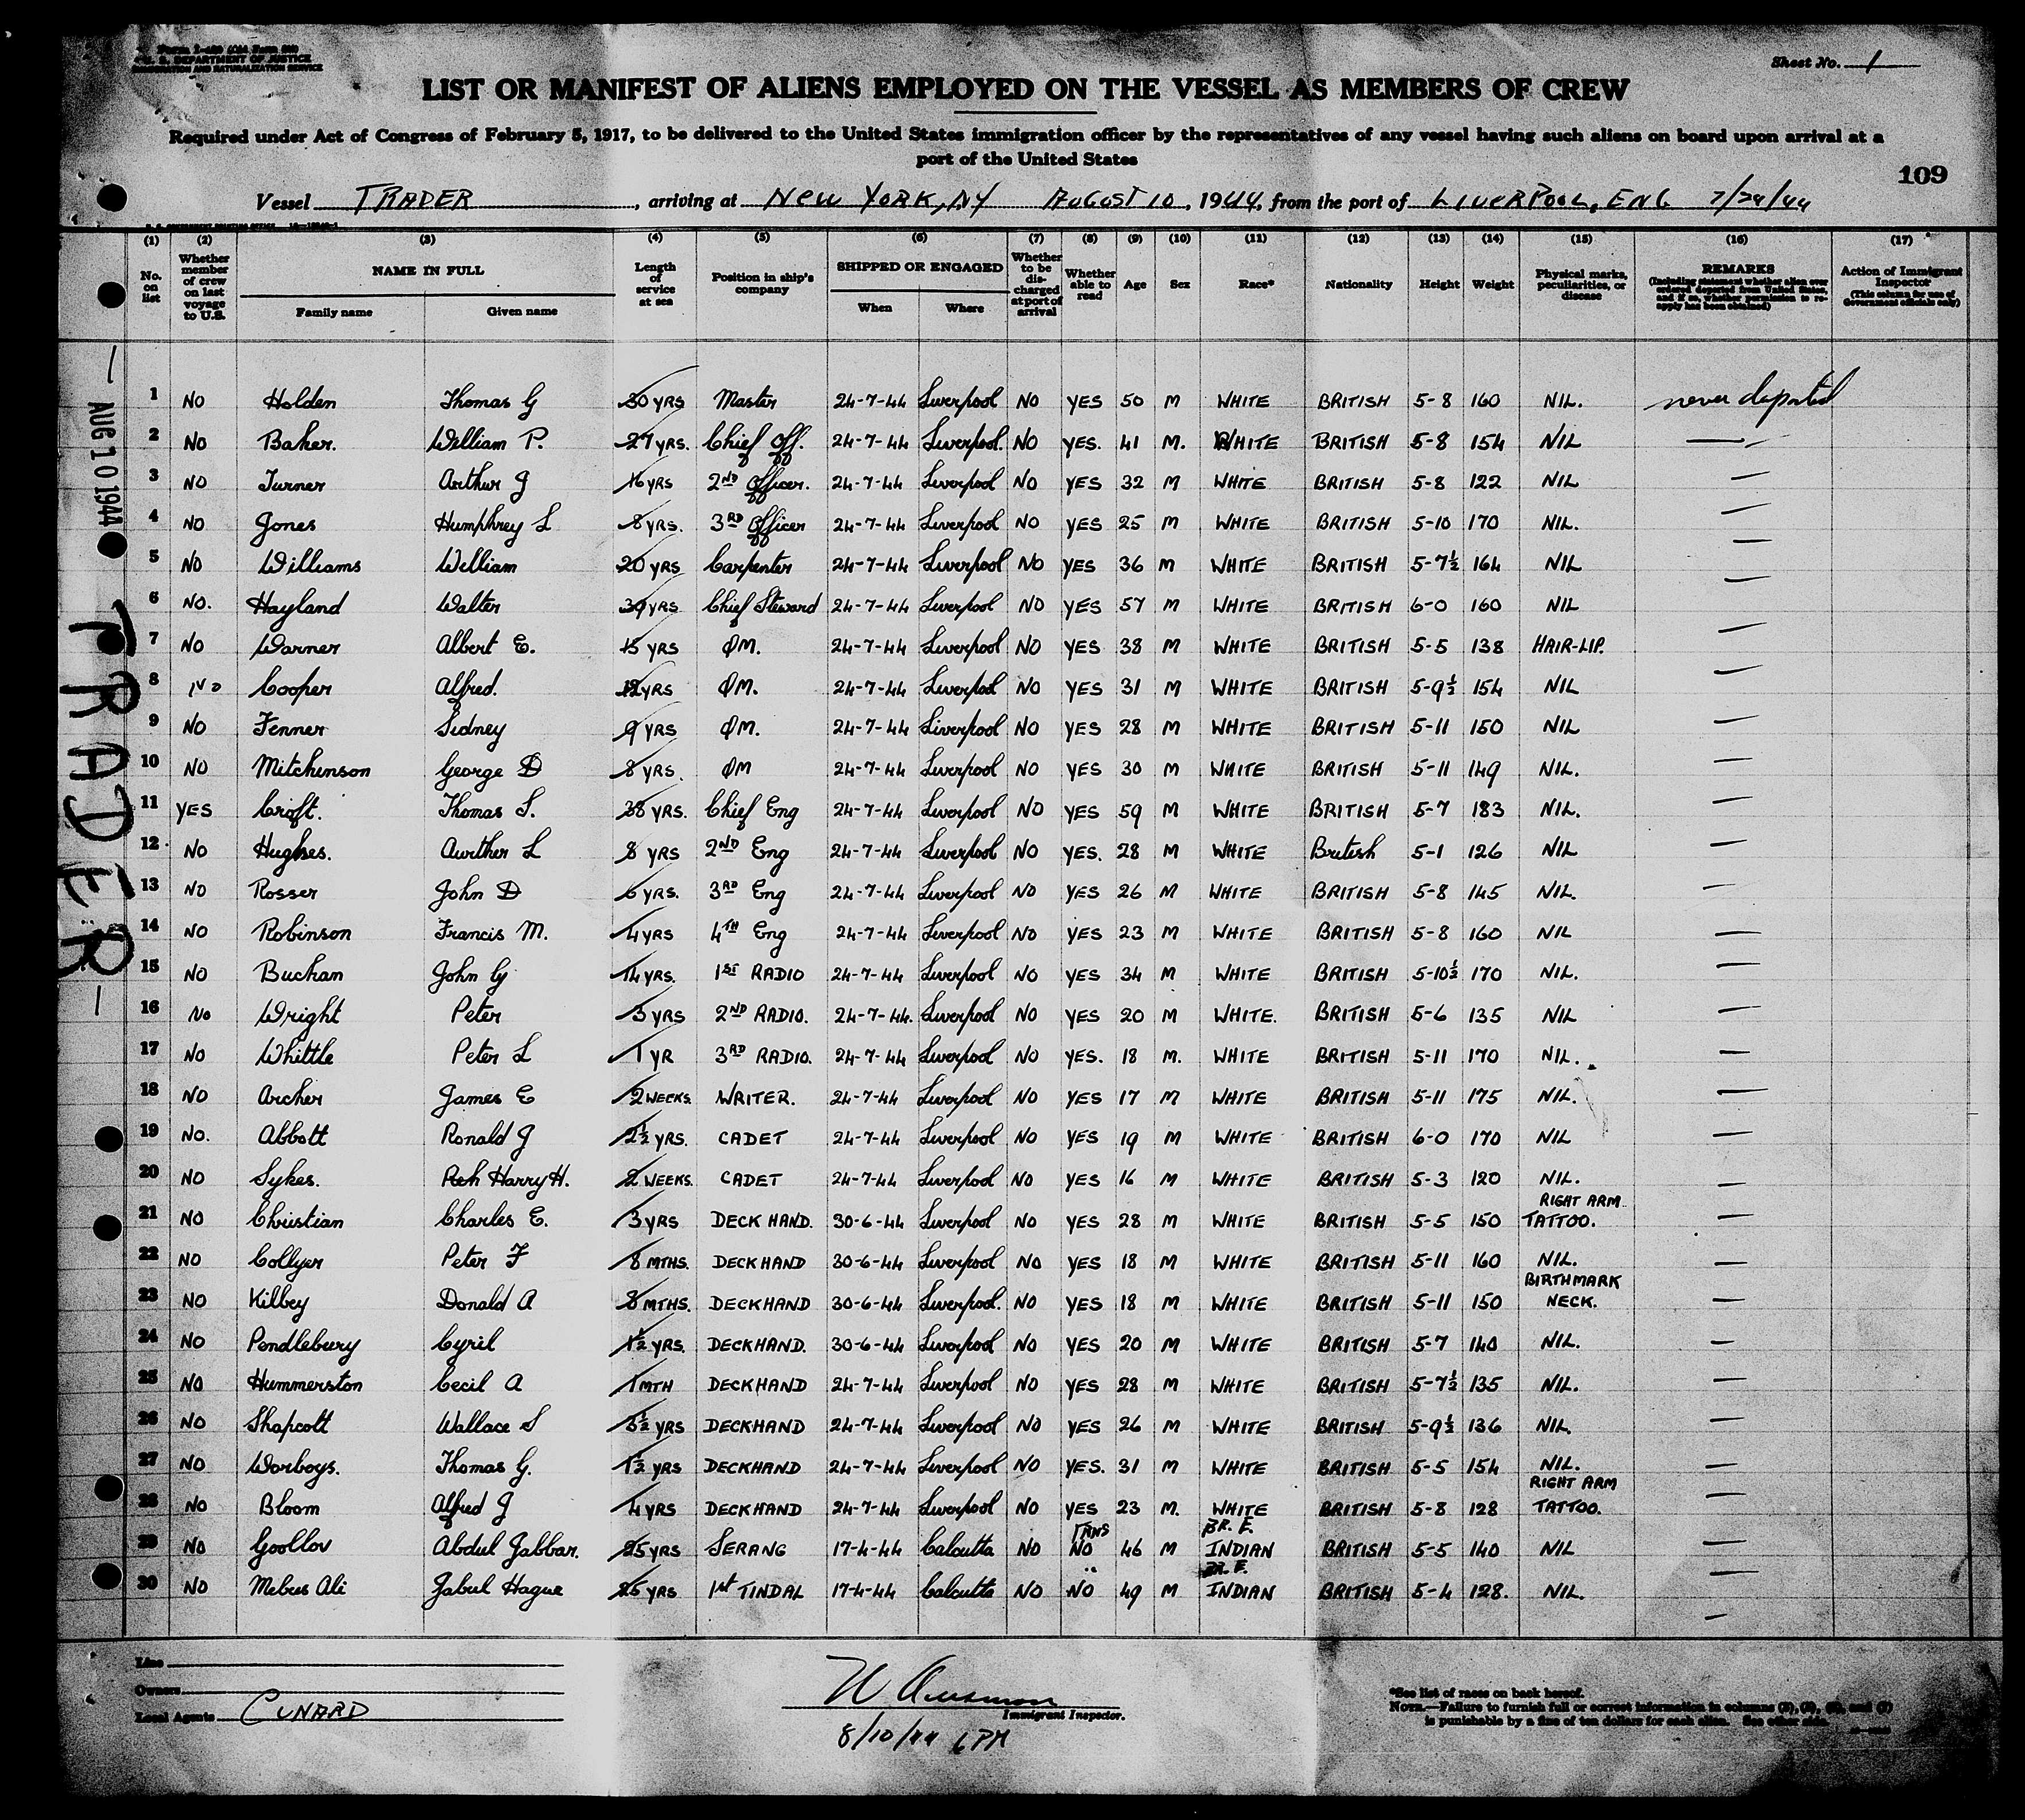 Form I-489
U. S. DEPARTMENT OF JUSTICE
IMMIGRATION AND NATURALIZATION SERVICE
Sheet No. 1
LIST OR MANIFEST OF ALIENS EMPLOYED ON THE VESSEL AS MEMBERS OF CREW
Required under Act of Congress of February 5, 1917, to be delivered to the United States immigration officer by the representatives of any vessel having such aliens on board upon arrival at a
port of the United States
109
Vessel TRADER, arriving at NEW YORK, NY AUGUST 10, 1944, from the port of LIVERPOOL, ENG 7/24/44
(1) (2) (3) (4) (5) (6) (7) (8) (9) (10) (11) (12) (13) (14) (15) (16) (17)
No. on list Whether member of crew on last voyage to U.S. NAME IN FULL Family name Given name Length of service at sea Position in ship's company SHIPPED OR ENGAGED When Where Whether to be discharged at port of arrival Whether able to read Age Sex Race* Nationality Height Weight Physical marks, peculiarities, or disease REMARKS (Including statement whether alien ever ordered deported from United States, and if so, whether permission to reapply has been obtained) Action of Immigrant Inspector (This column for use of Government officials only)
1 NO Holden Thomas G 30 YRS Master 24-7-44 Liverpool NO YES 50 M WHITE BRITISH 5-8 160 NIL. never deported
2 NO Baker. William P. 27 YRS. Chief Off. 24-7-44 Liverpool. NO YES. 41 M. WHITE BRITISH 5-8 154 NIL —
3 NO Turner Arthur J 16 YRS 2ND Officer. 24-7-44 Liverpool NO YES 32 M WHITE BRITISH 5-8 122 NIL —
4 NO Jones Humphrey L 8 YRS. 3RD Officer 24-7-44 Liverpool NO YES 25 M WHITE BRITISH 5-10 170 NIL. —
5 NO Williams William 20 YRS Carpenter 24-7-44 Liverpool NO YES 36 M WHITE BRITISH 5-7½ 164 NIL —
6 NO. Hayland Walter 39 YRS Chief Steward 24-7-44 Liverpool NO YES 57 M WHITE BRITISH 6-0 160 NIL —
7 NO Warner Albert E. 15 YRS QM. 24-7-44 Liverpool NO YES 38 M WHITE BRITISH 5-5 138 HAIR-LIP. —
8 NO Cooper Alfred. 12 YRS QM. 24-7-44 Liverpool NO YES 31 M WHITE BRITISH 5-9½ 154 NIL —
9 NO Fenner Sidney 9 YRS QM. 24-7-44 Liverpool NO YES 28 M WHITE BRITISH 5-11 150 NIL —
10 NO Mitchinson George D 8 YRS. QM 24-7-44 Liverpool NO YES 30 M WHITE BRITISH 5-11 149 NIL. —
11 YES Croft. Thomas S. 38 YRS. Chief Eng 24-7-44 Liverpool NO YES 59 M WHITE BRITISH 5-7 183 NIL. —
12 NO Hughes. Aurther L 8 YRS 2ND Eng 24-7-44 Liverpool NO YES. 28 M WHITE British 5-1 126 NIL —
13 NO Rosser John D 6 YRS. 3RD Eng 24-7-44 Liverpool NO YES 26 M WHITE BRITISH 5-8 145 NIL. —
14 NO Robinson Francis M. 4 YRS 4TH Eng 24-7-44 Liverpool NO YES 23 M WHITE BRITISH 5-8 160 NIL —
15 NO Buchan John G 14 YRS. 1ST RADIO 24-7-44 Liverpool NO YES 34 M WHITE BRITISH 5-10½ 170 NIL. —
16 NO Wright Peter 3 YRS 2ND RADIO. 24-7-44. Liverpool NO YES 20 M WHITE. BRITISH 5-6 135 NIL —
17 NO Whittle Peter L 1 YR 3RD RADIO. 24-7-44 Liverpool NO YES. 18 M. WHITE BRITISH 5-11 170 NIL. —
18 NO Archer James E 2 WEEKS. WRITER. 24-7-44 Liverpool NO YES 17 M WHITE BRITISH 5-11 175 NIL. —
19 NO. Abbott Ronald J 2½ YRS. CADET 24-7-44 Liverpool NO YES 19 M WHITE BRITISH 6-0 170 NIL —
20 NO Sykes. Harry H. 2 WEEKS. CADET 24-7-44 Liverpool NO YES 16 M WHITE BRITISH 5-3 120 NIL. —
21 NO Christian Charles E. 3 YRS DECK HAND. 30-6-44 Liverpool NO YES 28 M WHITE BRITISH 5-5 150 RIGHT ARM TATTOO. —
22 NO Collyer Peter F 8 MTHS. DECKHAND 30-6-44 Liverpool NO YES 18 M WHITE BRITISH 5-11 160 NIL. —
23 NO Kilbey Donald A 8 MTHS. DECKHAND 30-6-44 Liverpool. NO YES 18 M WHITE BRITISH 5-11 150 BIRTHMARK NECK. —
24 NO Pendlebury Cyril 1½ YRS. DECKHAND. 30-6-44 Liverpool NO YES 20 M WHITE BRITISH 5-7 140 NIL. —
25 NO Hummerston Cecil A 1 MTH DECKHAND 24-7-44 Liverpool NO YES 28 M WHITE BRITISH 5-7½ 135 NIL. —
26 NO Shapcott Wallace S 3½ YRS DECKHAND 24-7-44 Liverpool NO YES 26 M WHITE BRITISH 5-9½ 136 NIL. —
27 NO Worboys. Thomas G. 1½ YRS DECKHAND 24-7-44 Liverpool NO YES. 31 M WHITE BRITISH 5-5 154 NIL. —
28 NO Bloom Alfred J 4 YRS DECKHAND 24-7-44 Liverpool NO YES 23 M. WHITE BRITISH 5-8 128 RIGHT ARM TATTOO. —
29 NO Goollov Abdul Gabbar. 25 YRS SERANG 17-4-44 Calcutta NO NO 46 M BR. E. INDIAN BRITISH 5-5 140 NIL —
30 NO Mebus Ali Jabul Hague 25 YRS 1st TINDAL 17-4-44 Calcutta NO NO 49 M BR. E. INDIAN BRITISH 5-4 128. NIL. —
— AUG 10 1944
TRADER —
Line
Owners
Local Agents CUNARD
Immigrant Inspector.
8/10/44 6 PM
*See list of races on back hereof.
NOTE.—Failure to furnish full or correct information in columns (3), (5), (6), and (7)
is punishable by a fine of ten dollars for each alien. See other side.